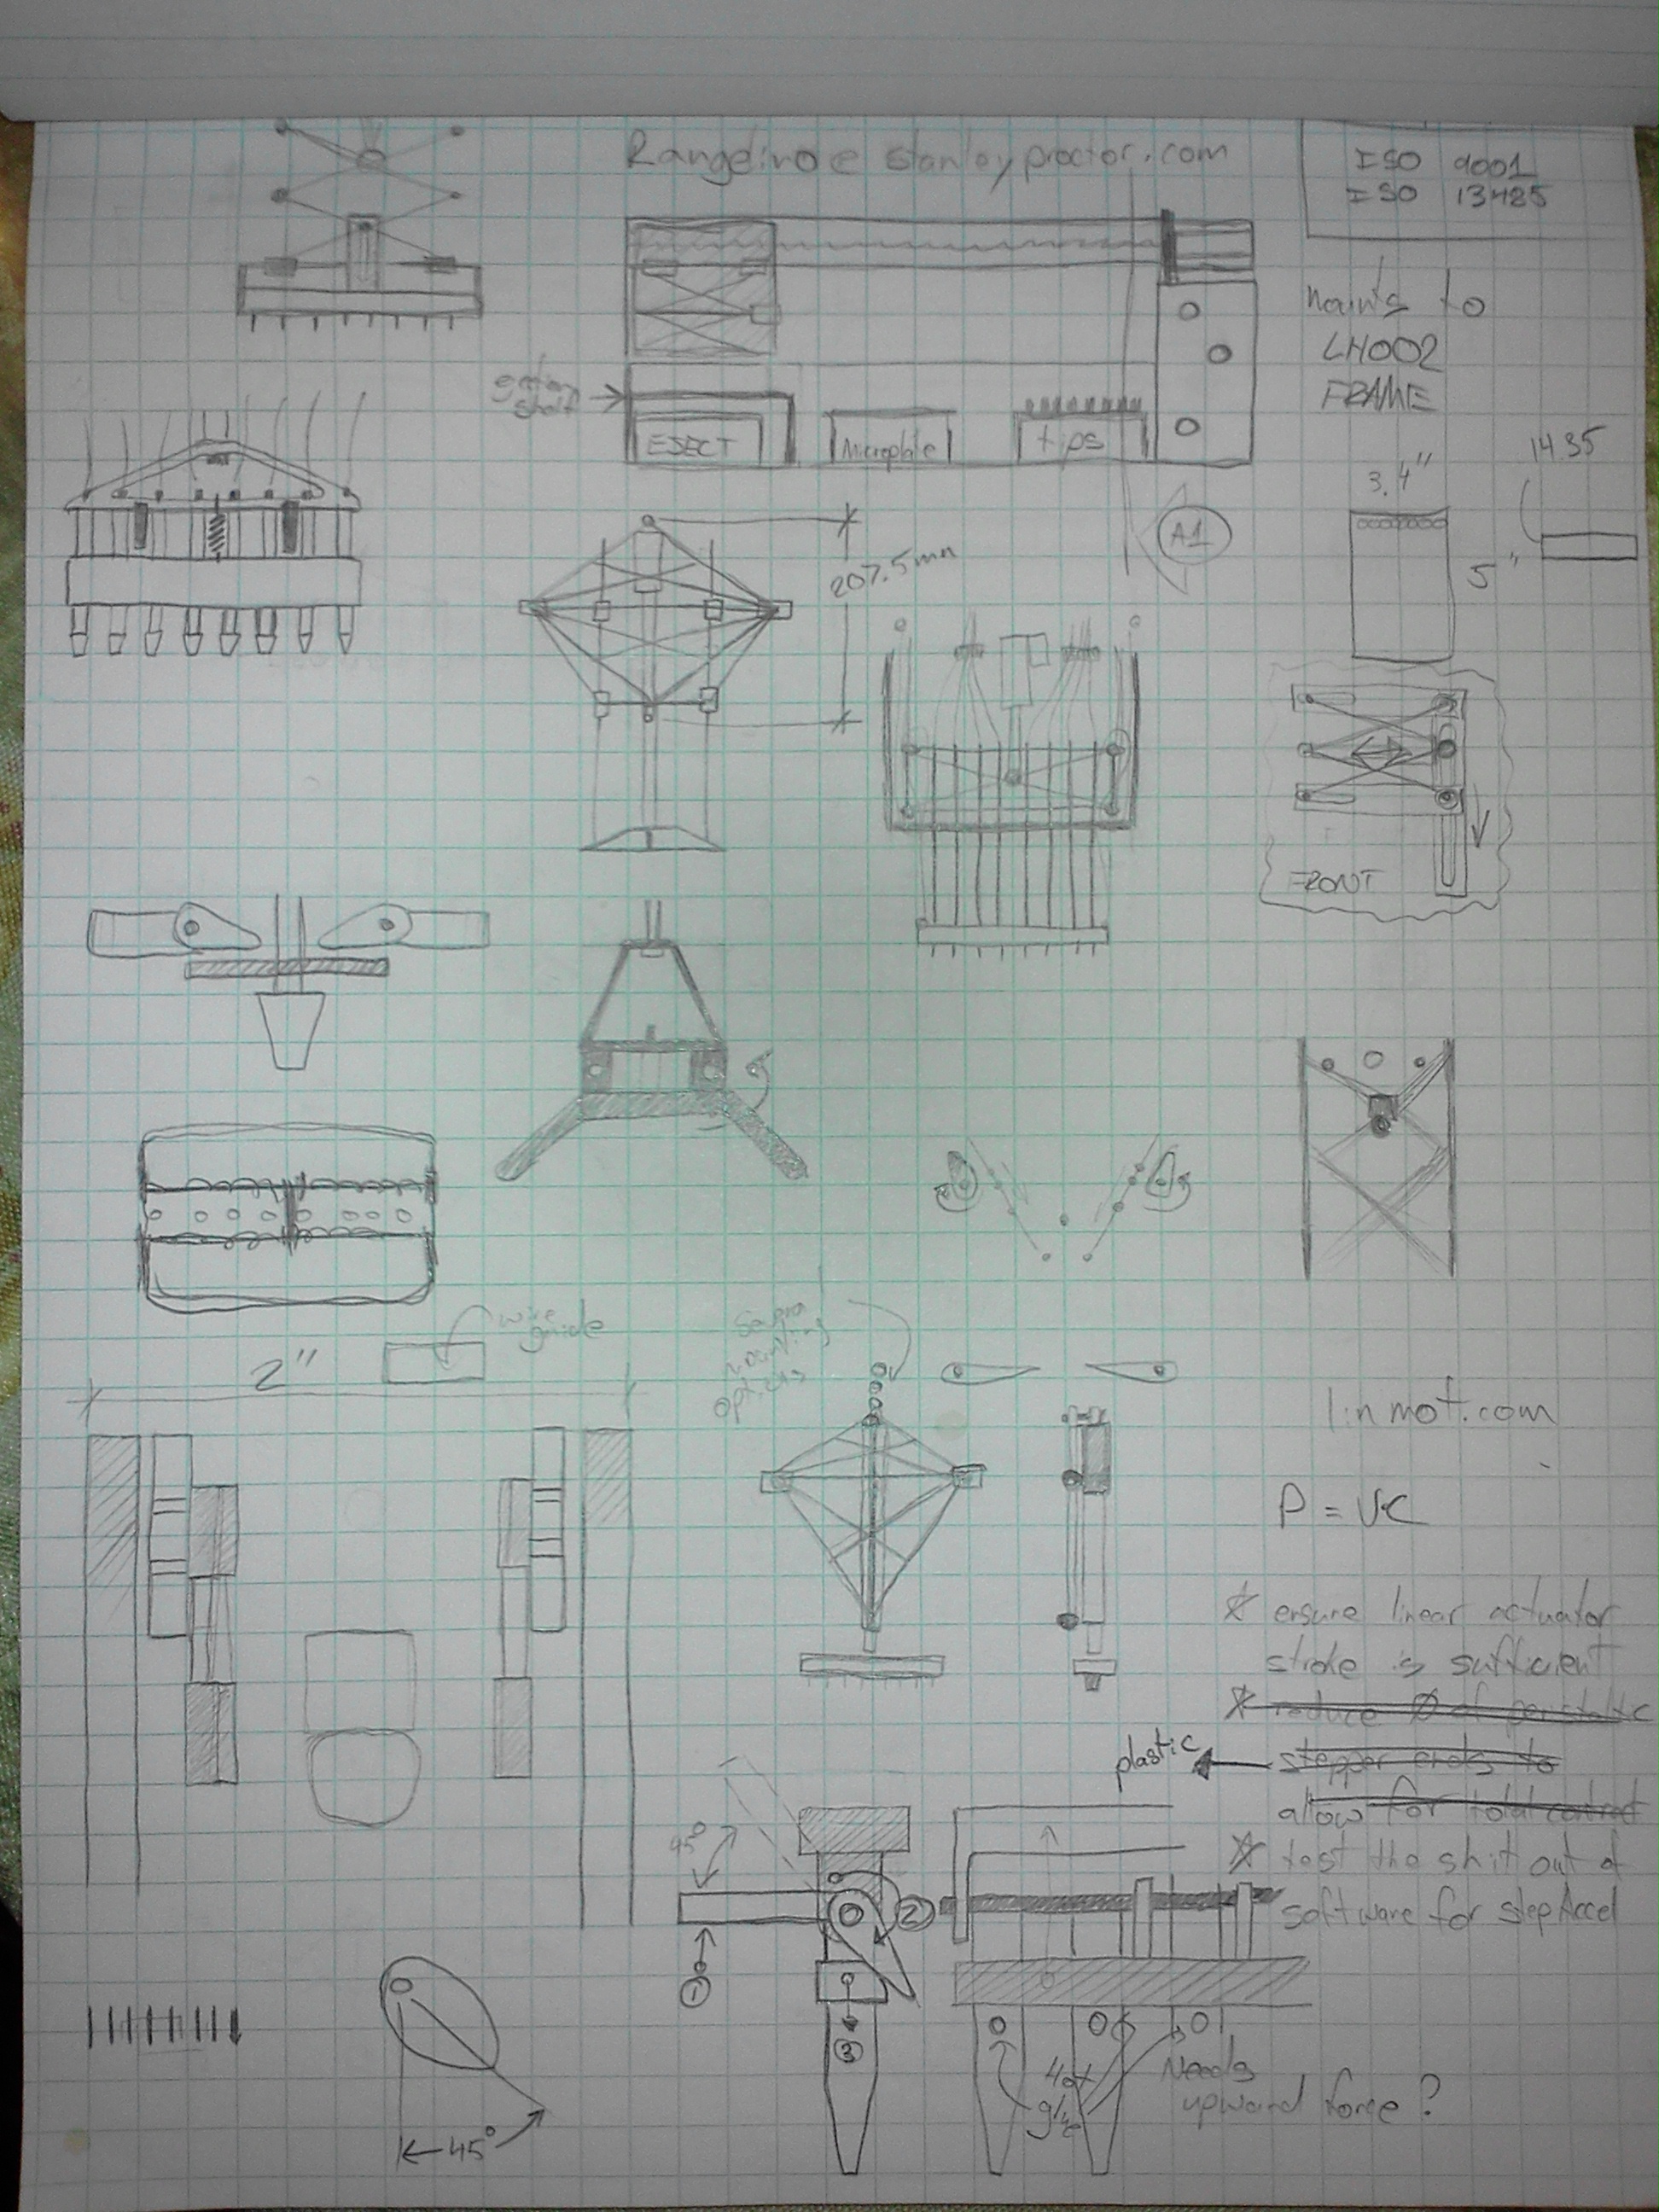 Rangelino e stanleyproctor.com
ISO 9001
ISO 13485
to
LH002
FRAME
ejection
shelf
EJECT
Microplate
tips
14.35
3.4"
5"
A1
207.5mm
FRONT
wire
guide
2"
mounting
options
linmot.com
P = VC
* ensure linear actuator
stroke is sufficient
* reduce Ø of peristaltic
plastic
stepper ends to
allow for total control
* test the shit out of
software for stepAccel
45°
1
2
3
Hot
glue
Needs
upward force?
45°